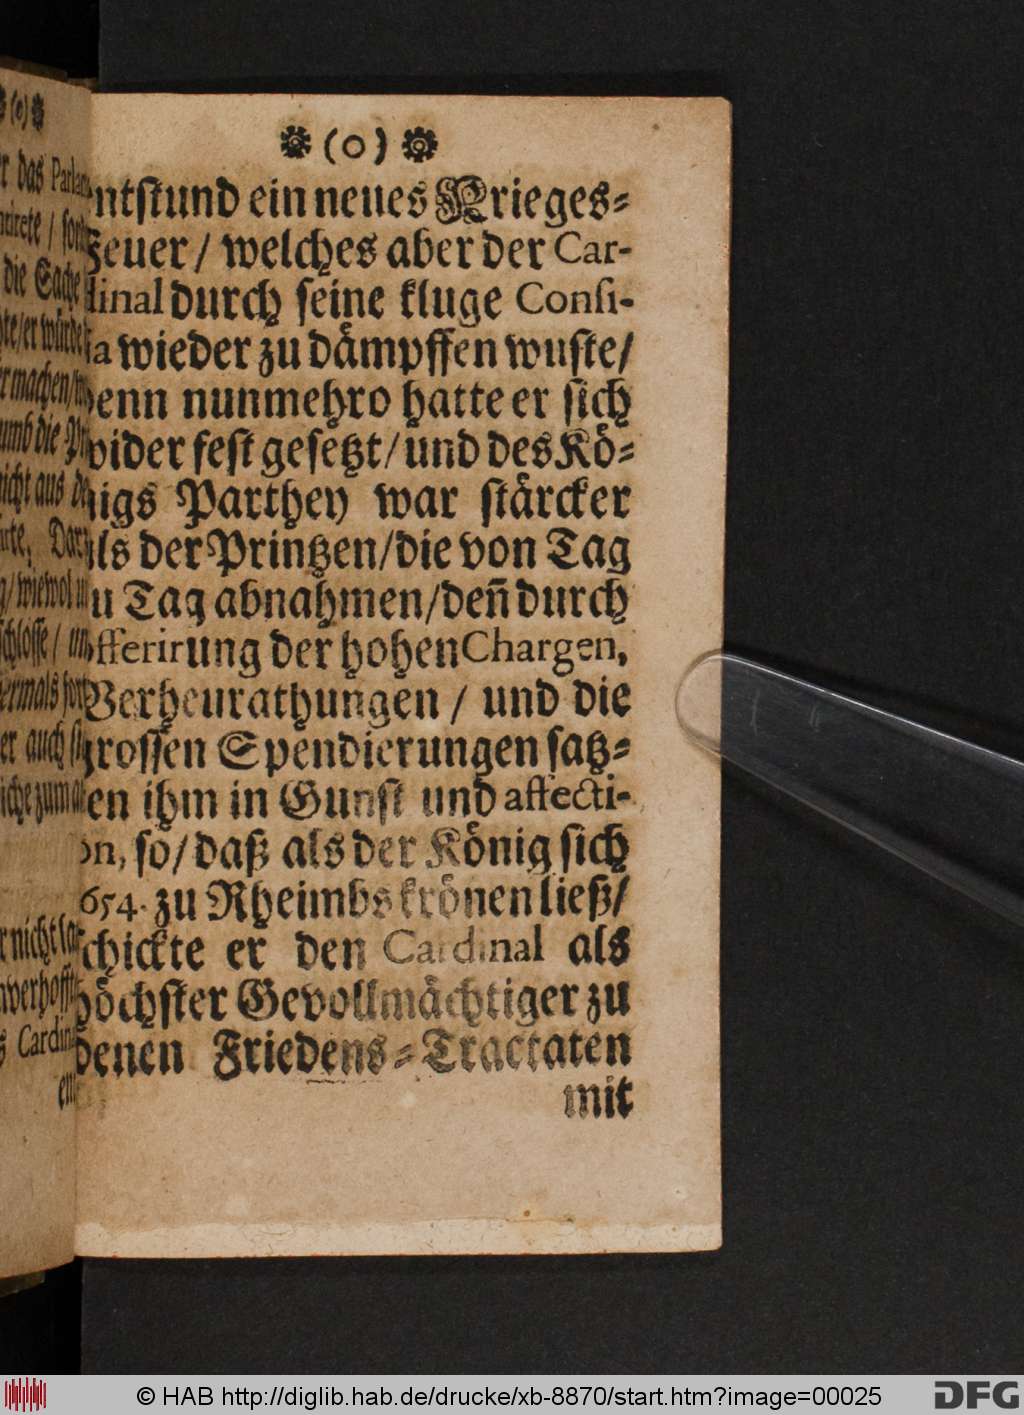 ❋ (o) ❋
ntstund ein neues Krieges⸗
Feuer / welches aber der Car-
dinal durch seine kluge Consi-
lia wieder zu dämpffen wuste/
denn nunmehro hatte er sich
wider fest gesetzt/und des Kö⸗
nigs Parthey war stärcker
als der Printzen/die von Tag
zu Tag abnahmen/deñ durch
offerirung der hohen Chargen,
Verheurathungen / und die
grossen Spendierungen satz⸗
ten ihm in Gunst und affecti-
on, so/ daß als der König sich
1654. zu Rheimbs krönen ließ/
schickte er den Cardinal als
höchster Gevollmächtiger zu
denen Friedens⸗Tractaten
mit
(o) ❋
das Parla
die Sache
machen/
umb die
nicht aus
/wiewol
schlosse /
ermals
er auch
nicht
verhofft
Cardin
© HAB http://diglib.hab.de/drucke/xb-8870/start.htm?image=00025
DFG